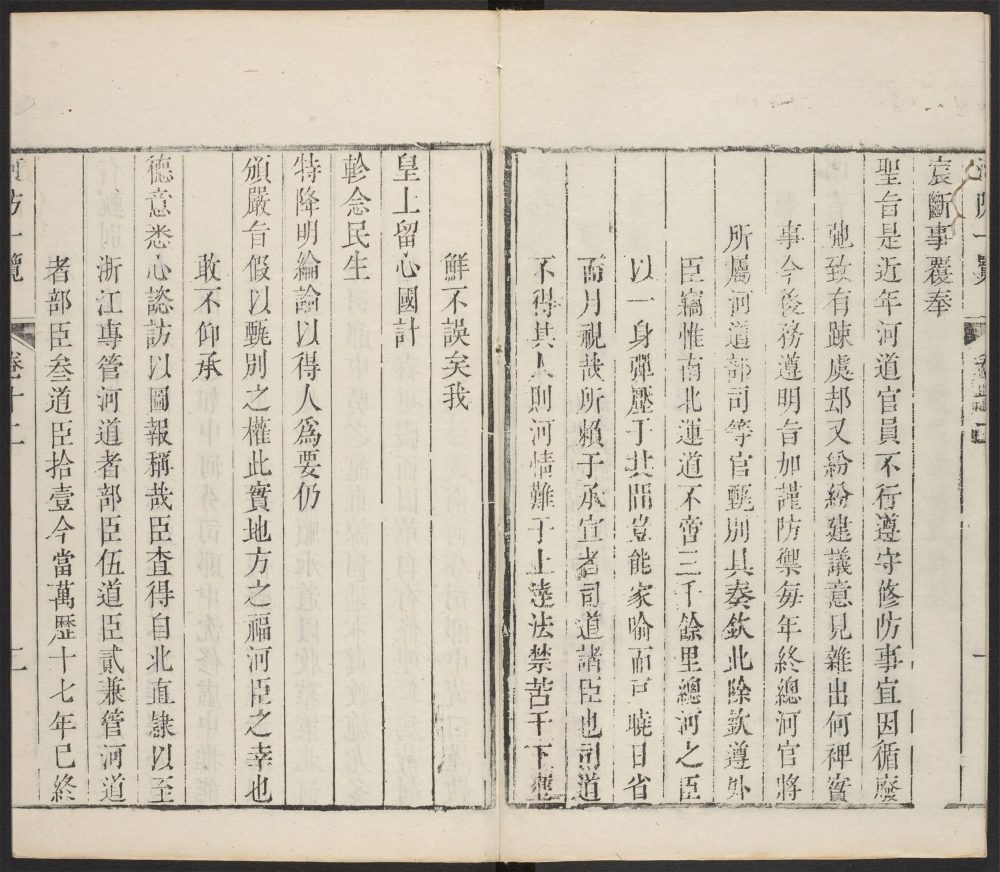 宸斷事覆奉
聖旨是近年河道官員不行遵守修防事宜因循廢
弛致有踈虞却又紛紛建議意見雜出何裨實
事今後務遵明旨加謹防禦每年終總河官將
所屬河道部司等官甄別具奏欽此除欽遵外
臣竊惟南北運道不啻三千餘里總河之臣
以一身彈壓于其間豈能家喻而戸曉日省
而月視哉所賴于承宣者司道諸臣也司道
不得其人則河情難于上達法禁苦于下壅
鮮不誤矣我
皇上留心國計
軫念民生
特降明綸諭以得人爲要仍
頒嚴旨假以甄別之權此實地方之福河臣之幸也
敢不仰承
德意悉心諮訪以圖報稱哉臣查得自北直隸以至
浙江專管河道者部臣伍道臣貳兼管河道
者部臣叁道臣拾壹今當萬歷十七年巳終
河防一覽
卷十二
二